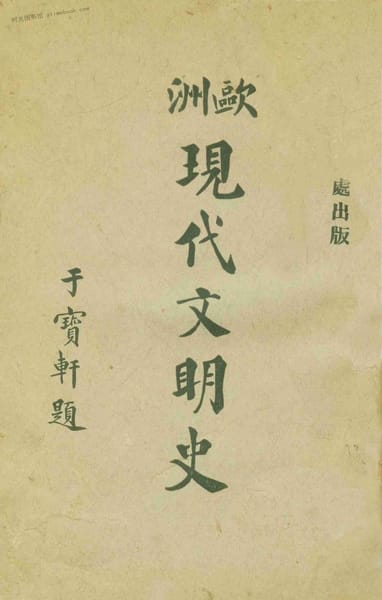 處出版
歐洲
現代文明史
于寶軒題